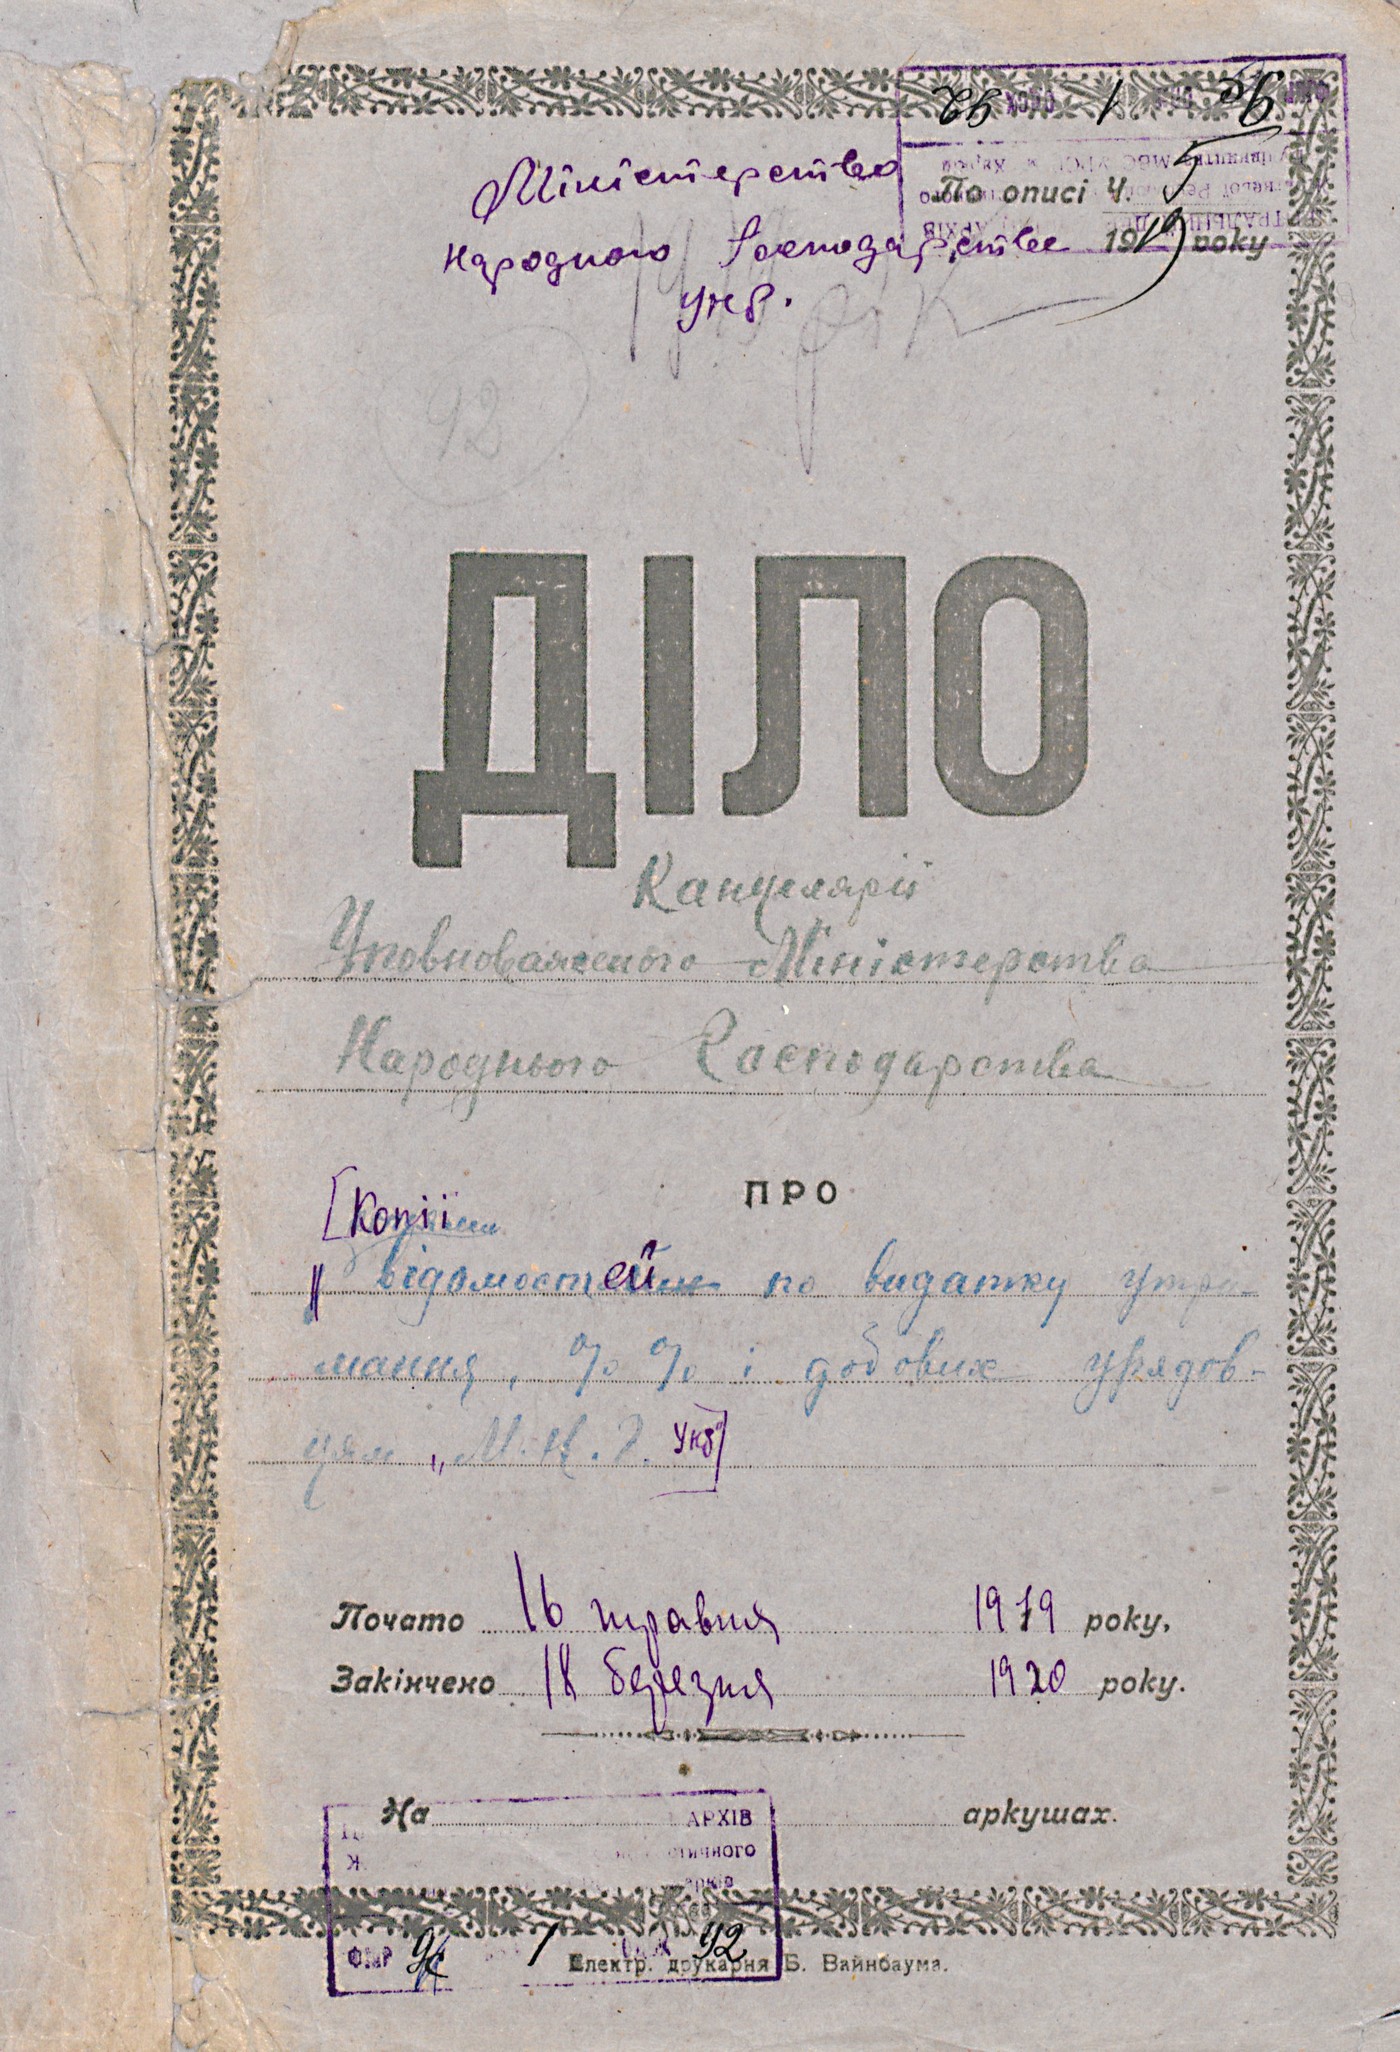 Міністерство
народного Господарства
УНР.
По описі Ч. 5
1919 року
42
ДІЛО
Канцелярії
Уповноваженого Міністерства
Народнього Господарства
ПРО
[Копії
відомостей по видатку утри-
мання, %% і добових урядов-
цям „М.Н.Г. УНР"]
Почато 16 травня 1919 року.
Закінчено 18 березня 1920 року.
На аркушах.
АРХІВ
1 42
Електр. друкарня Б. Вайнбаума.